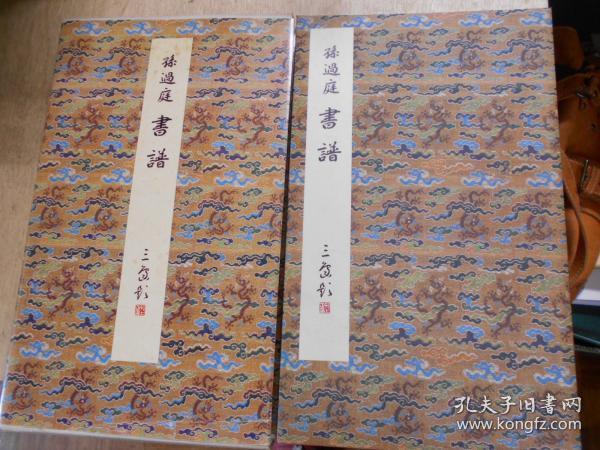 孫過庭 書譜
三
孫過庭 書譜
三
孔夫子旧書网
www.kongfz.com